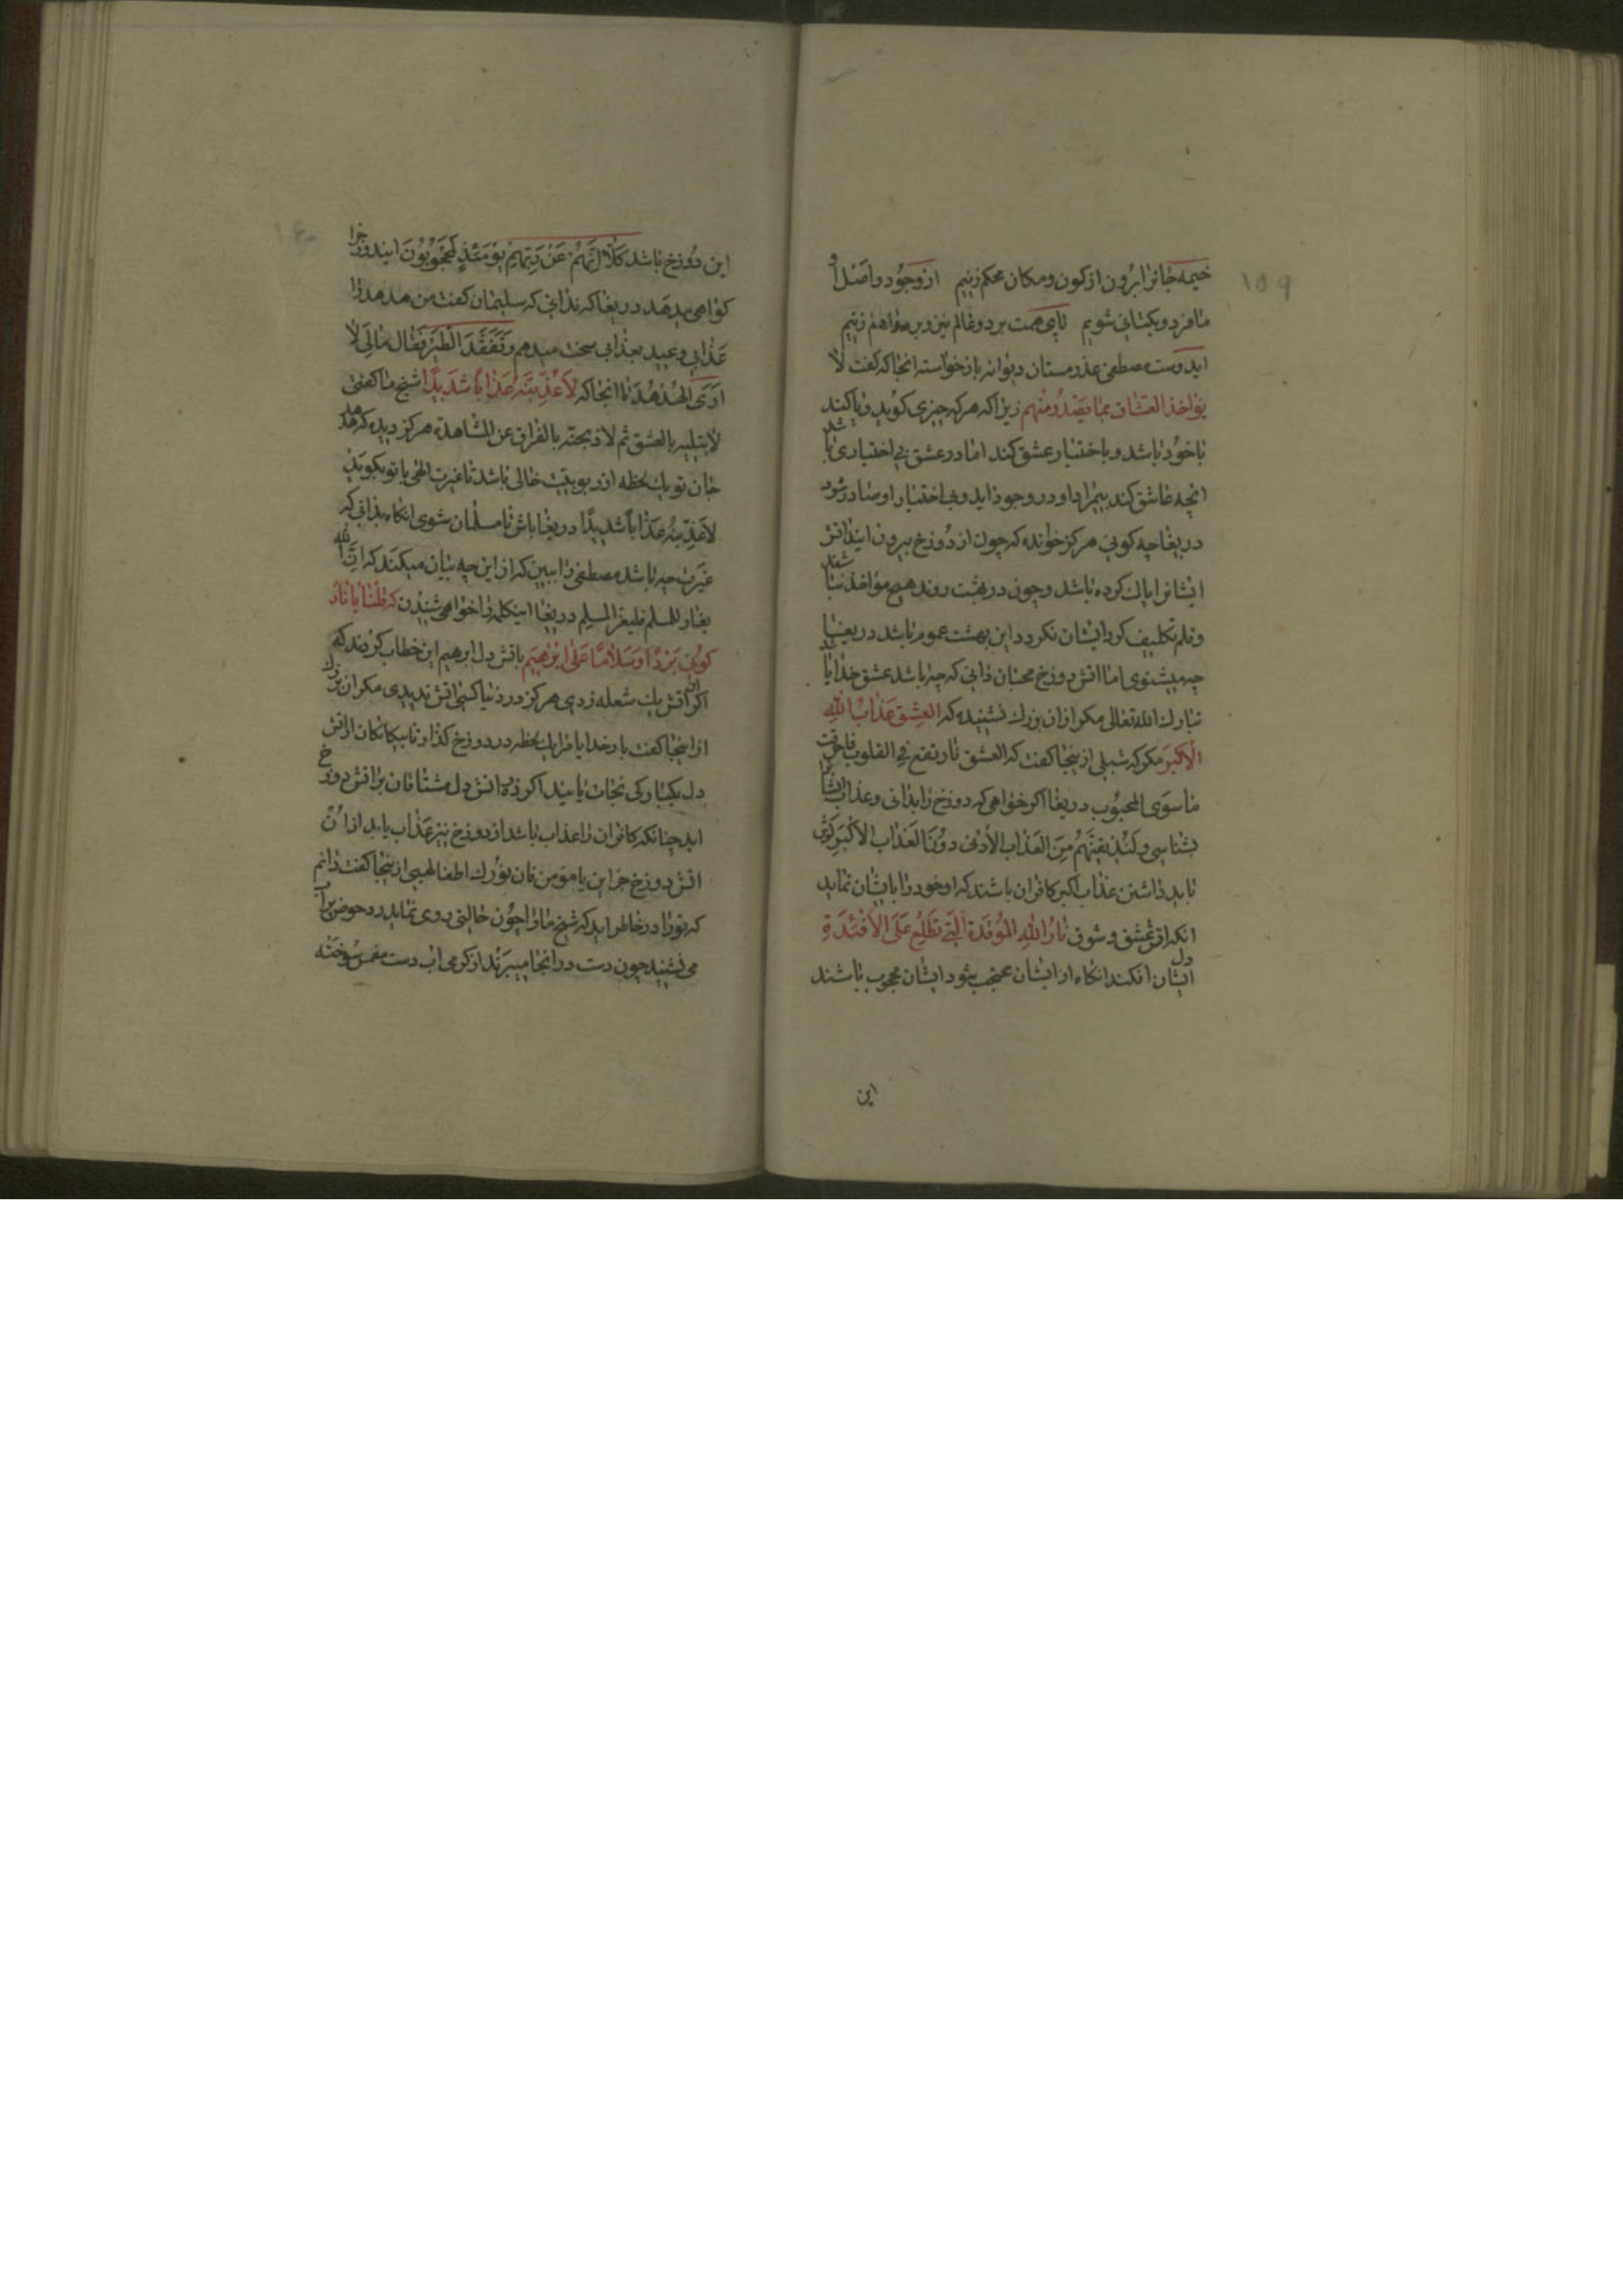 ۱۵۹
خیمه جانرا برون از کون و مکان محکم زنیم از وجود و اصل او
ما فرد و یکتائی شویم پای همت بر دو عالم نیز و بر هم زنیم
ایدوست مصطفی عذر مستان دیوانه باز خواسته انجا که کفت لا
یؤاخذ العشاق بما یصدر منهم زیرا که هر که چیزی کوید و یا کند
با خود باشد و باختیار عشق کند اما در عشق بی اختیاری باشد
انچه عاشق کند بیمراد او در وجود اید و بی اختیار او صادر شود
دریغا چه کویی هرکز خوانده که چون از دوزخ بیرون ایند اتش
ایشانرا پاک کرده باشد و چون در بهشت روند هیچ مؤاخذ نباشند
و قلم تکلیف کرد ایشان نکردد این بهشت عموم باشد دریغا
چه میشنوی اما اتش دوزخ محبان دانی که چه باشد عشق خدا باشد
تبارک الله تعالی مکر از ان بزرک نشنیده که العشق عذاب الله
الاکبر مکر که شبلی از ینجا کفت که العشق نار تقع فی القلوب فاحرقت
ما سوی المحبوب دریغا اکر خواهی که دوزخ را بدانی و عذاب انرا
بشناسی و لنذیقنهم من العذاب الأدنی دون العذاب الاکبر کوش
باید داشتن عذاب اکبر کافران باشند که او خود را بایشان نماید
انکه اتش عشق و شوق نار الله الموقدة التی تطلع علی الافئدة
دل ایشان افکند انکاه از ایشان محتجب شود ایشان محجوب باشند
این
۱۶۰
این دوزخ باشد کلا انهم عن ربهم یومئذ لمحجوبون ایندوزخ را
کواهی میدهد دریغا که ندانی که سلیمان کفت من هدهد را
عذابی وعید بعذابی سخت میدهم و تفقد الطیر فقال مالی لا
اری الهدهد تا انجا که لأعذبنه عذابا شدیدا شیخ ما کفتی
لابتلیه بالعشق ثم لاذبحنه بالفراق عن المشاهدة هرکز دیده که هدهد
جان تو یک لحظه از ربوبیت خالی باشد تا غیرت الهی با تو بکوید
لأعذبنه عذابا شدیدا دریغا باش تا مسلمان شوی انکاه بدانی که
غیرت چه باشد مصطفی را ببین که از این چه بیان میکند که ان الله
یغار للمسلم فلیغر المسلم دریغا اینکلمه را خواهی شنیدن که قلنا یا نار
کونی بردا و سلاما علی ابرهیم باتش دل ابرهیم این خطاب کردند که
اکر ان اتش یک شعله زدی هرکز در دنیا کسی اتش ندیدی مکر ان بزرک
از اینجا کفت بار خدایا مرا یک لحظه در دوزخ کذار تا بیکانکان از اتش
دل یکبارکی نجات یابند اکر ذره اتش دل مشتاقان بر اتش دوزخ
اید چنانکه کافران را عذاب باشد از دوزخ نیز عذاب یابد از ان
اتش دوزخ جز این یا مؤمن فان نورک اطفأ لهبی از ینجا کفت دانم
که تورا در خاطر اید که شیخ ما را چون حالتی روی نماید در حوض پر اب
می نشیند چون دست در انجا میبرند از کرمی اب دست سوخته